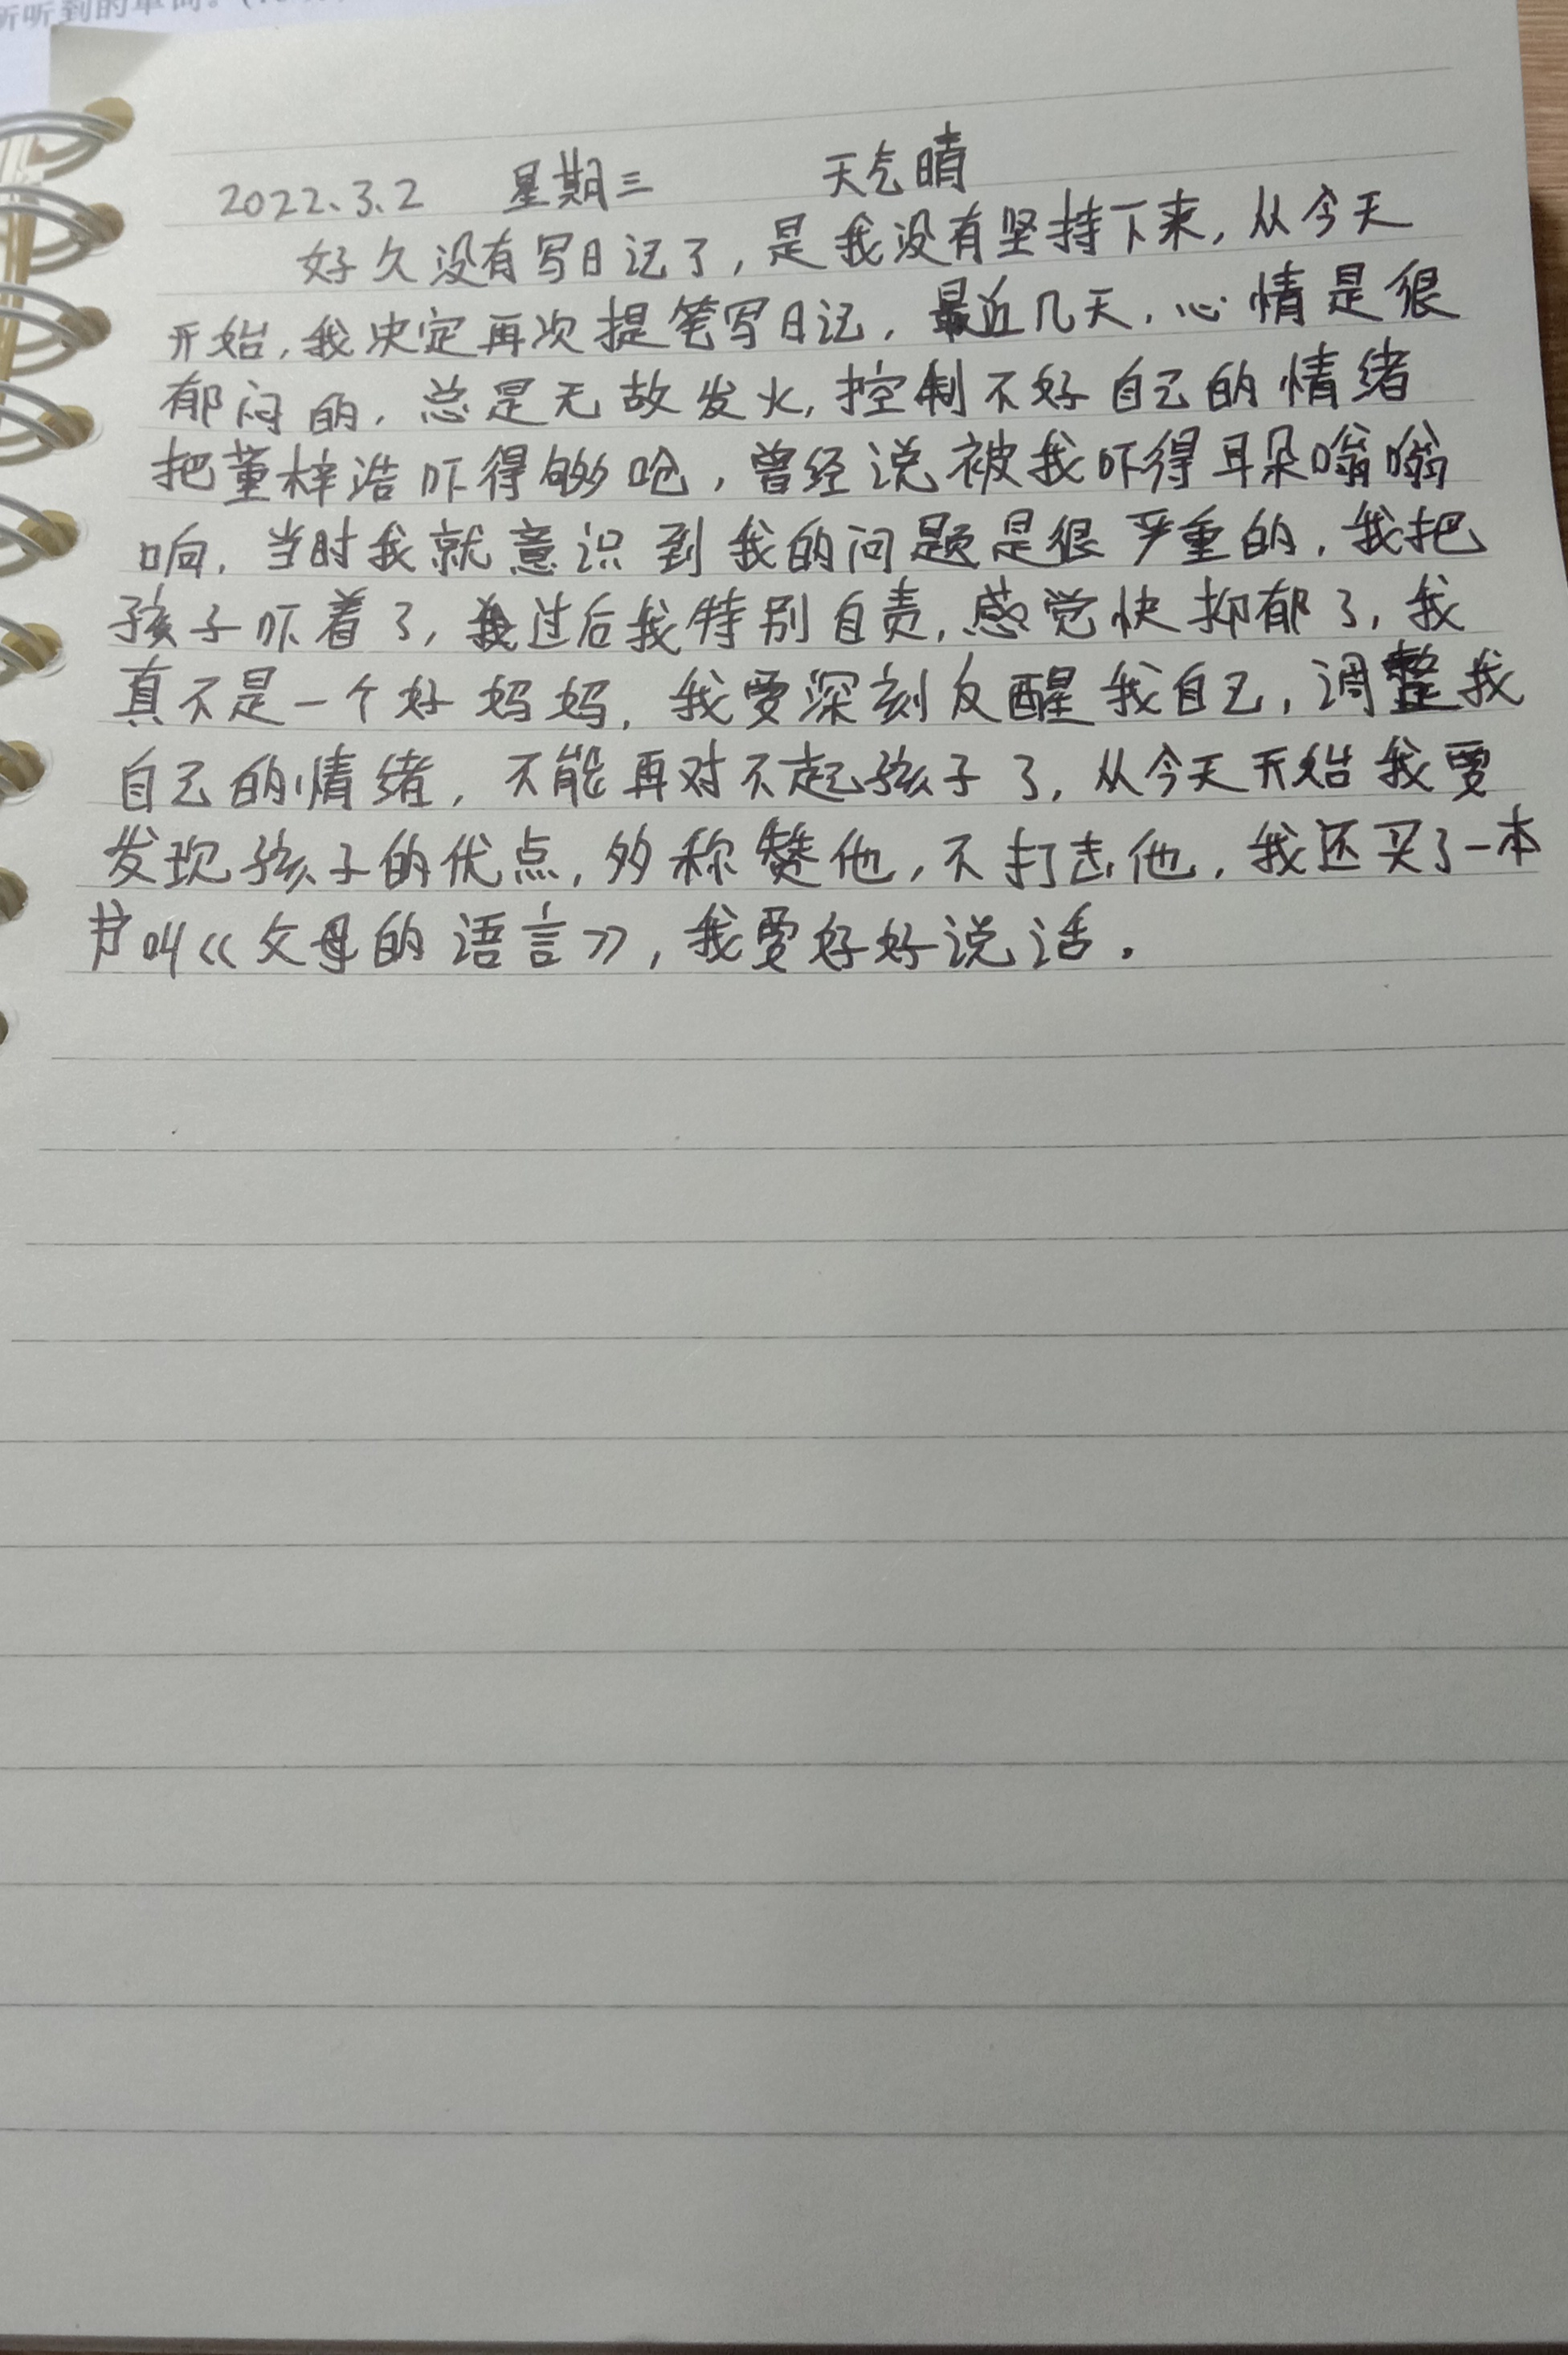 所听到的单词。
2022.3.2 星期三 天气晴
好久没有写日记了,是我没有坚持下来,从今天
开始,我决定再次提笔写日记,最近几天,心情是很
郁闷的,总是无故发火,控制不好自己的情绪
把董梓浩吓得够呛,曾经说被我吓得耳朵嗡嗡
响,当时我就意识到我的问题是很严重的,我把
孩子吓着了,过后我特别自责,感觉快抑郁了,我
真不是一个好妈妈,我要深刻反醒我自己,调整我
自己的情绪,不能再对不起孩子了,从今天开始我要
发现孩子的优点,多称赞他,不打击他,我还买了一本
书叫《父母的语言》,我要好好说话.